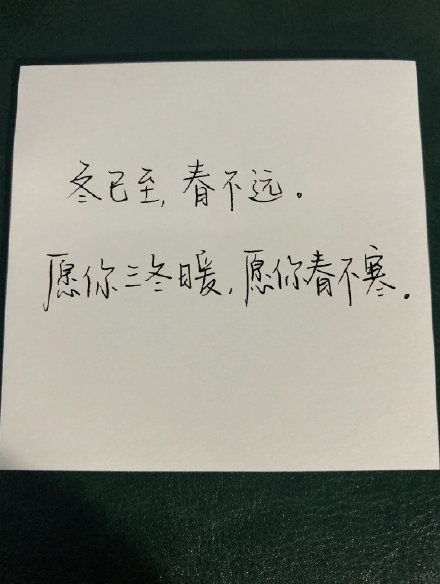 冬已至，春不远。
愿你三冬暖，愿你春不寒。